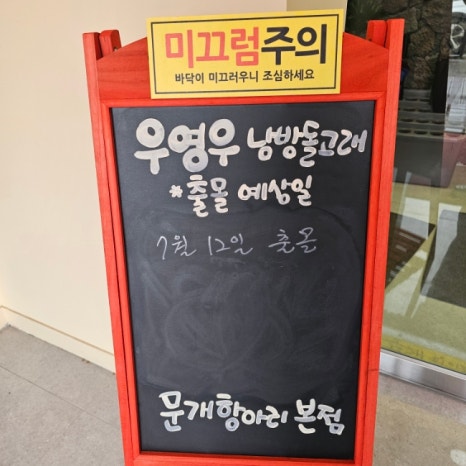 미끄럼주의
바닥이 미끄러우니 조심하세요
우영우 남방돌고래
*출몰 예상일
7월 12일 출몰
문개항아리 본점